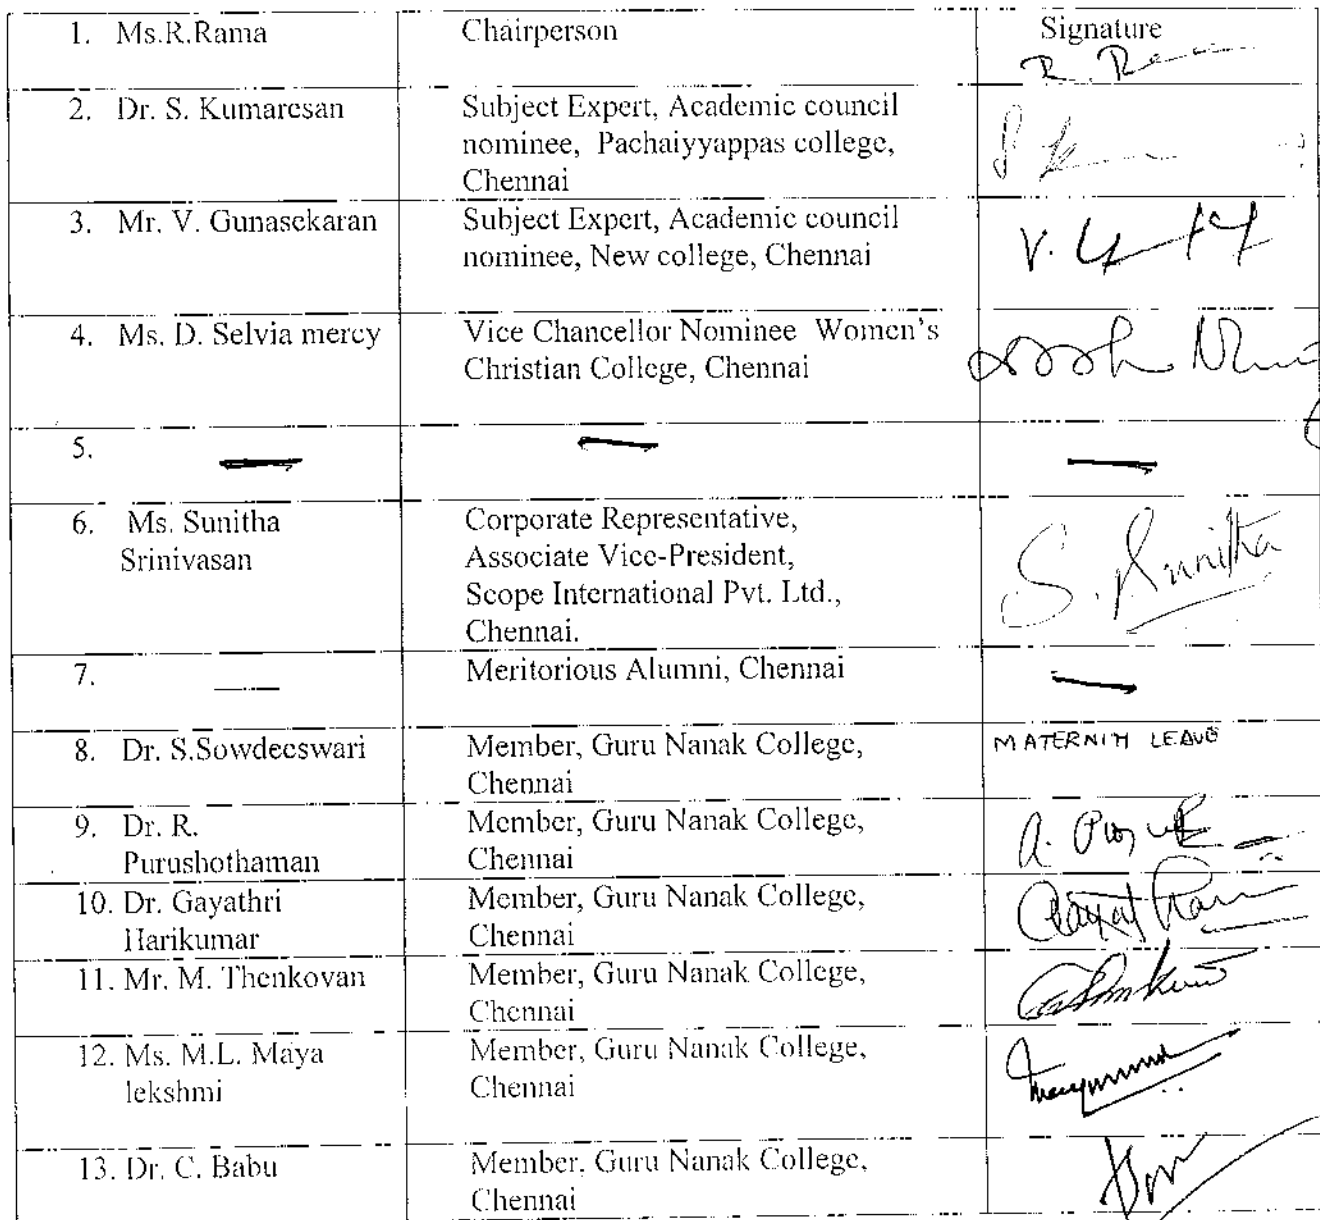 1. Ms.R.Rama Chairperson Signature
R. Ra
2. Dr. S. Kumaresan Subject Expert, Academic council
nominee, Pachaiyyappas college,
Chennai
3. Mr. V. Gunasekaran Subject Expert, Academic council
nominee, New college, Chennai
V.
4. Ms. D. Selvia mercy Vice Chancellor Nominee Women's
Christian College, Chennai
5.
6. Ms. Sunitha Corporate Representative,
Srinivasan Associate Vice-President,
Scope International Pvt. Ltd.,
Chennai.
S. Sunitha
7. Meritorious Alumni, Chennai
8. Dr. S.Sowdeeswari Member, Guru Nanak College, MATERNITY LEAVE
Chennai
9. Dr. R. Member, Guru Nanak College,
Purushothaman Chennai
10. Dr. Gayathri Member, Guru Nanak College,
Harikumar Chennai
11. Mr. M. Thenkovan Member, Guru Nanak College,
Chennai
12. Ms. M.L. Maya Member, Guru Nanak College,
lekshmi Chennai
13. Dr. C. Babu Member, Guru Nanak College,
Chennai